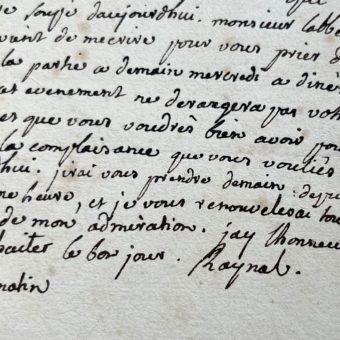 e soupé daujourdhui. monsieur labbé
vant de mecrire pour vous prier d
la partie a demain mercredi a diné
at evenement ne derangera pas vot
es que vous voudrés bien avoir pou
la complaisance que vous vouliés
dhui. jirai vous prendre demain. depui
ne heure, et je vous renouvelerai tou
de mon admiration. jay lhonneu
haiter le bon jour. Raynal.
matin